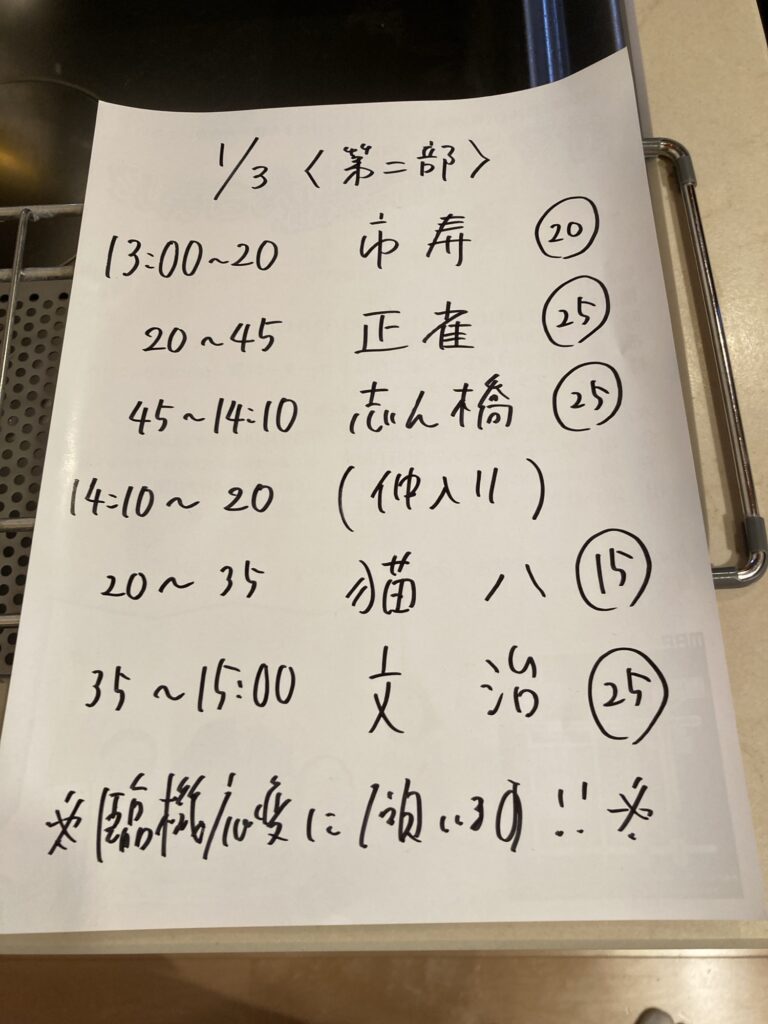 1/3 〈第二部〉
13:00〜20 市寿 ⑳
20〜45 正雀 ㉕
45〜14:10 志ん橋 ㉕
14:10〜20 (仲入り)
20〜35 猫八 ⑮
35〜15:00 文治 ㉕
※臨機応変に願います!!※